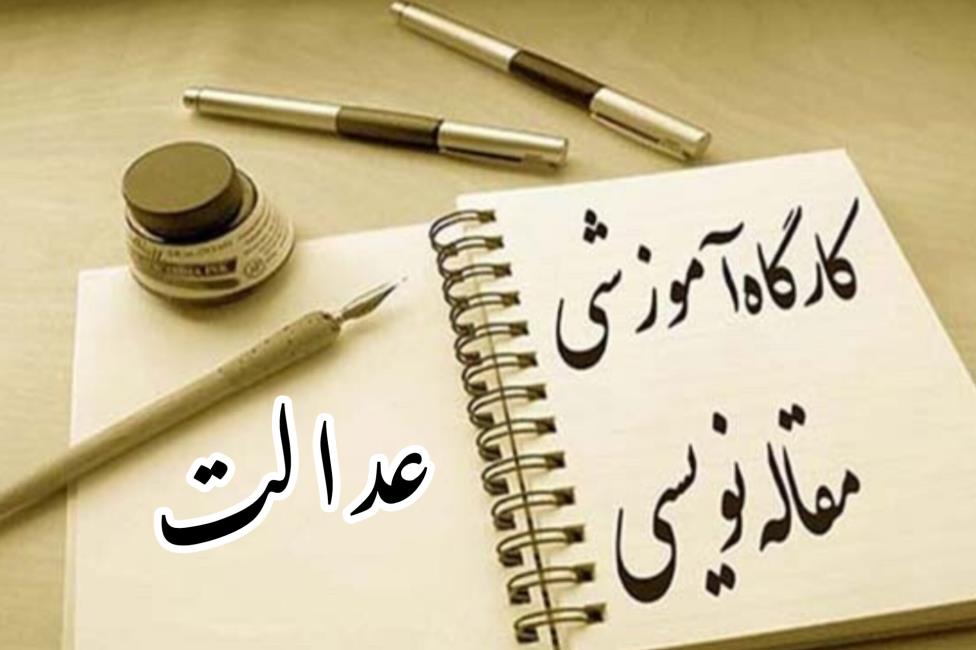 کارگاه آموزشی
مقاله نویسی
عدالت